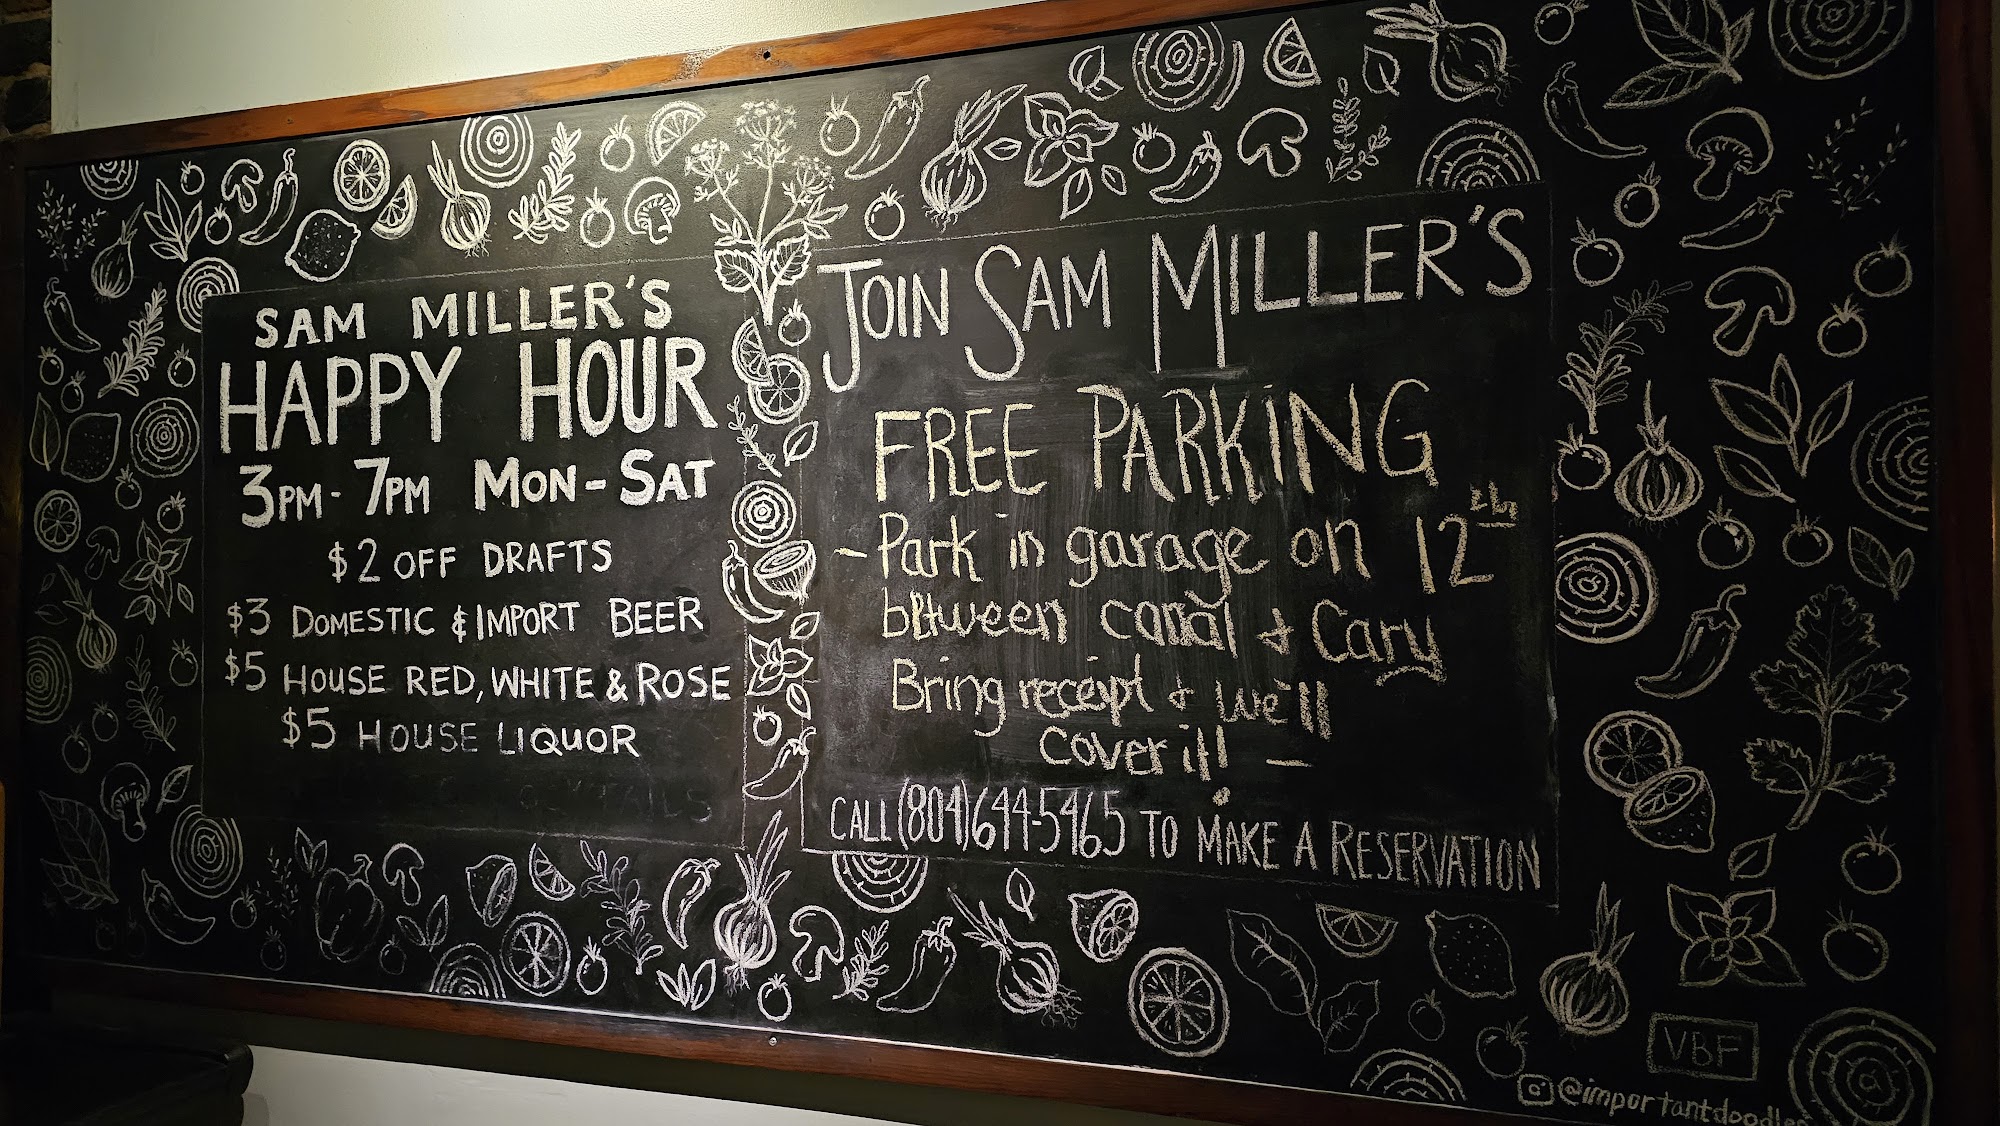 SAM MILLER'S
HAPPY HOUR
3PM - 7PM MON - SAT
$2 OFF DRAFTS
$3 DOMESTIC & IMPORT BEER
$5 HOUSE RED, WHITE & ROSE
$5 HOUSE LIQUOR
JOIN SAM MILLER'S
FREE PARKING
- Park in garage on 12th
between canal & Cary
Bring receipt & we'll
cover it! -
CALL (804) 644-5465 TO MAKE A RESERVATION
VBF
@importantdoodles